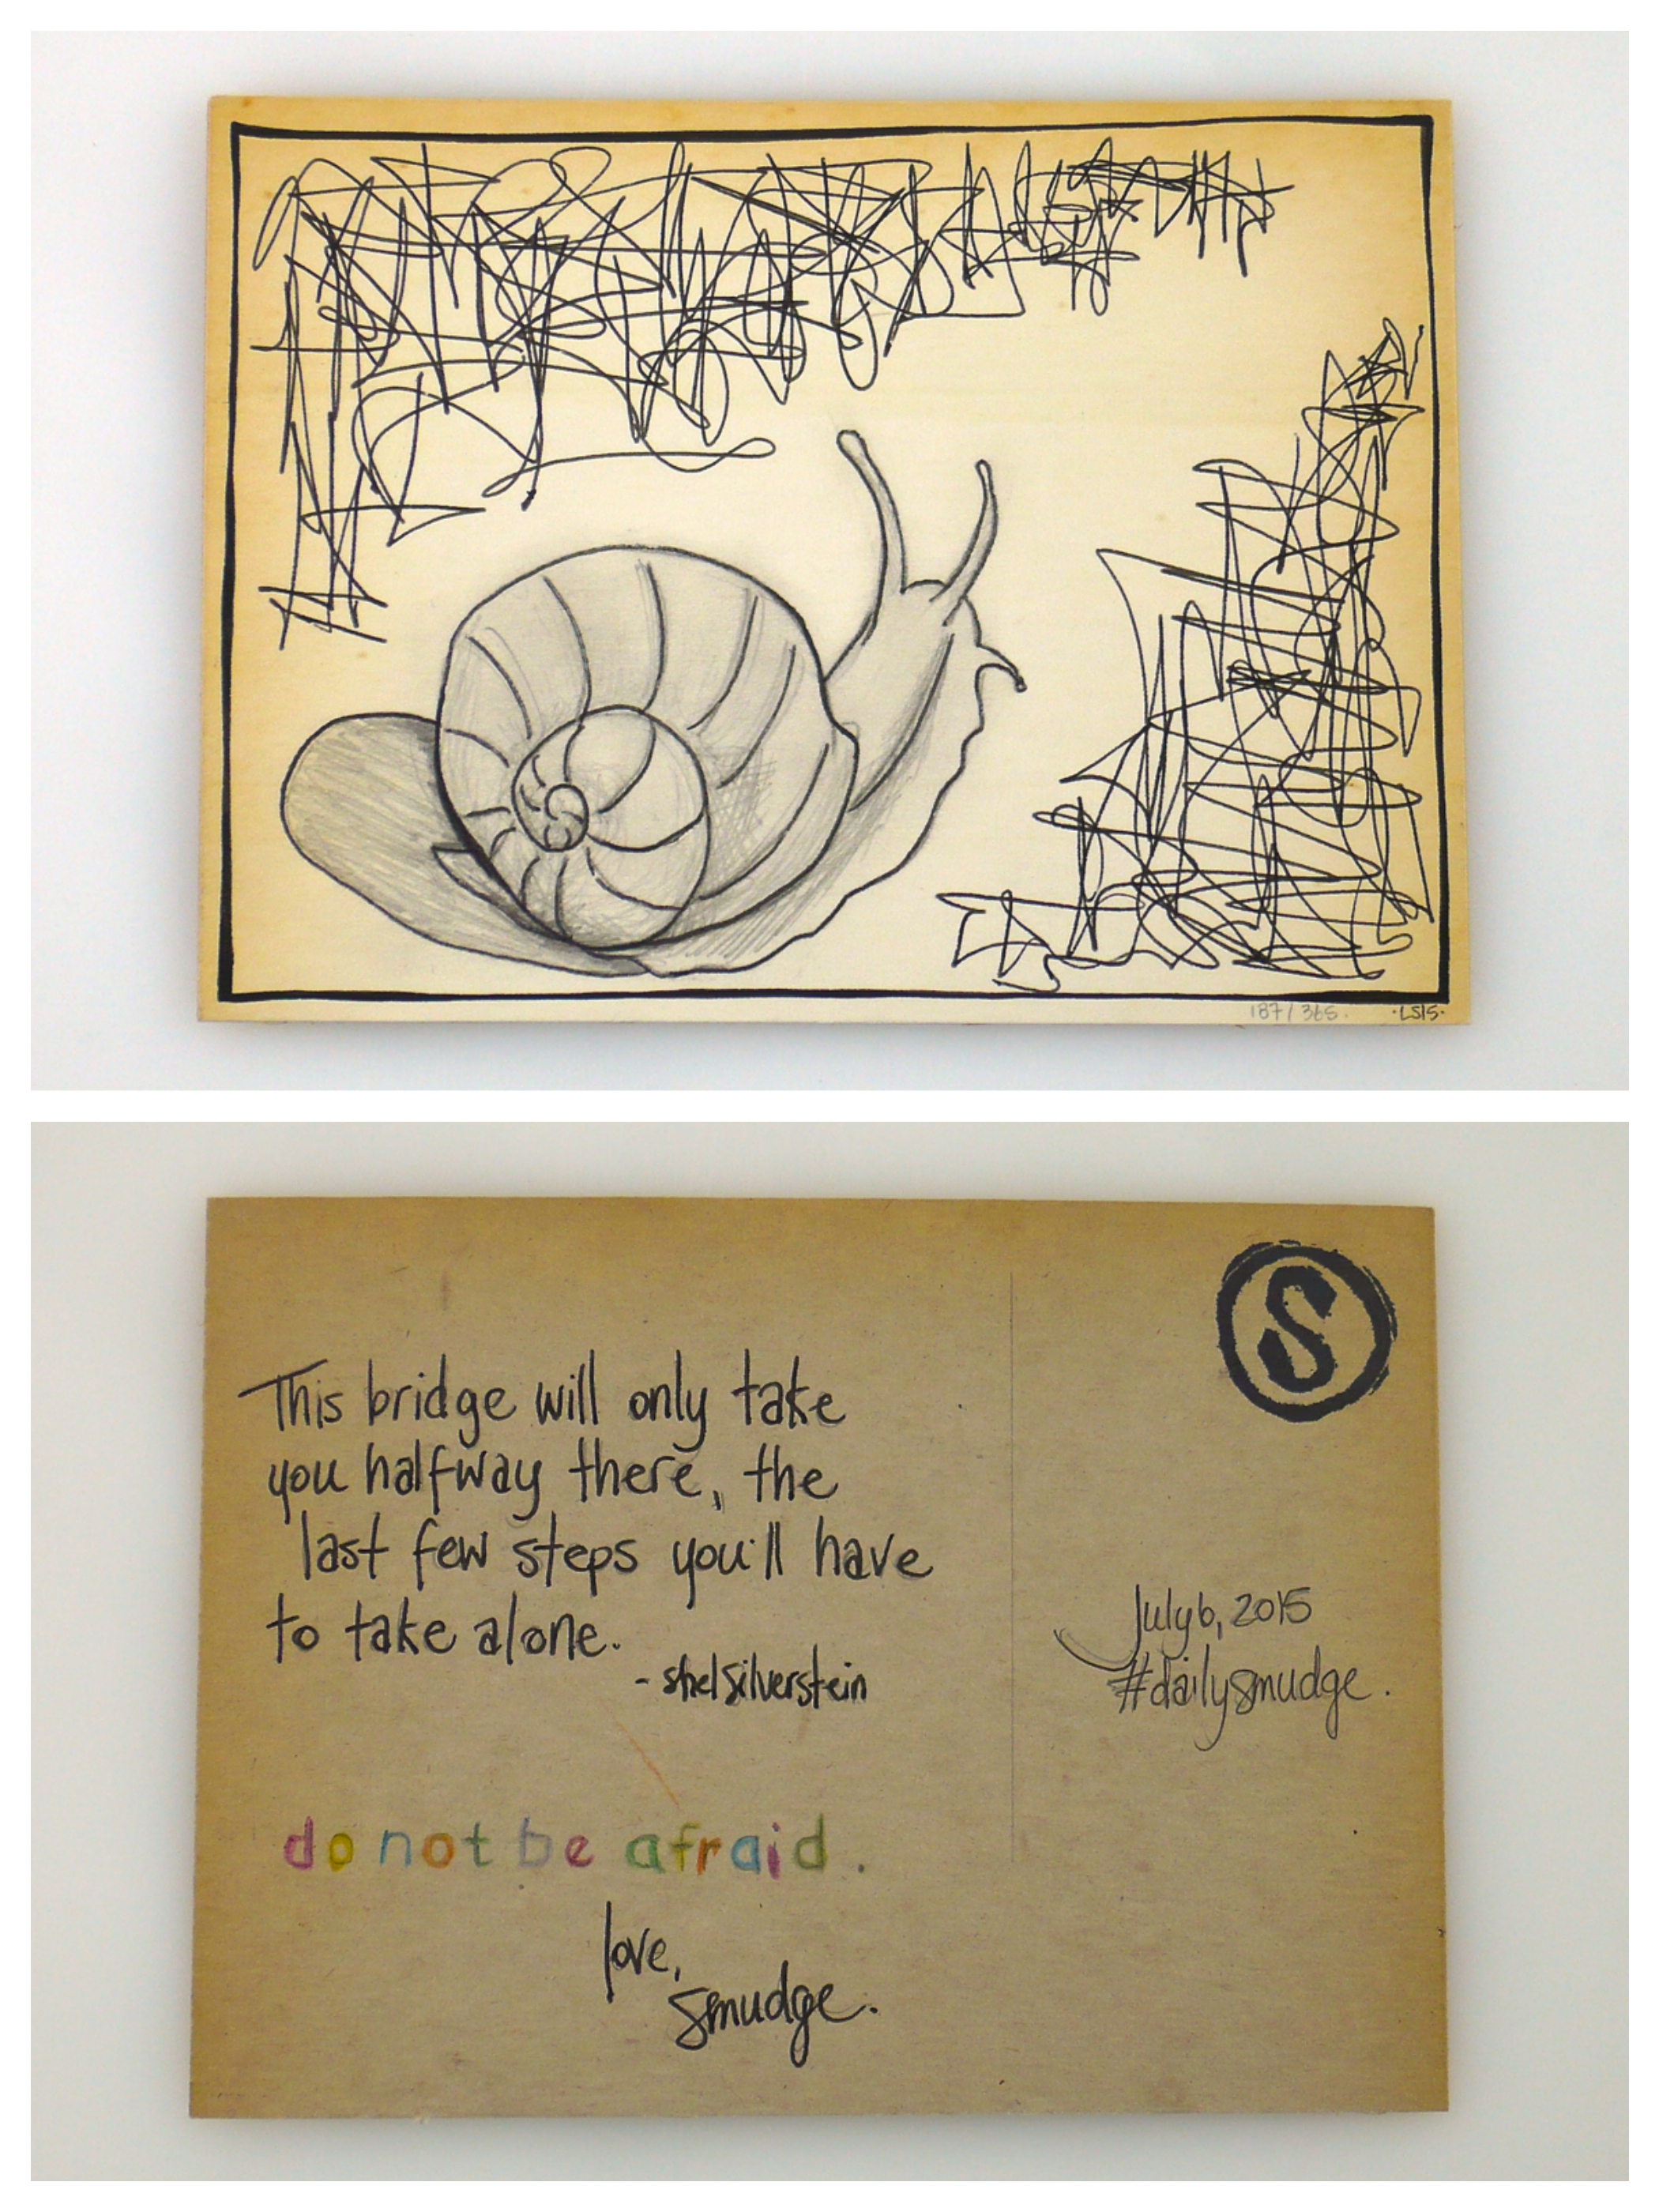 187/365.
·LS15·
S
This bridge will only take
you halfway there, the
last few steps you'll have
to take alone.
- shel silverstein
July 6, 2015
#dailysmudge.
do not be afraid.
love,
smudge.